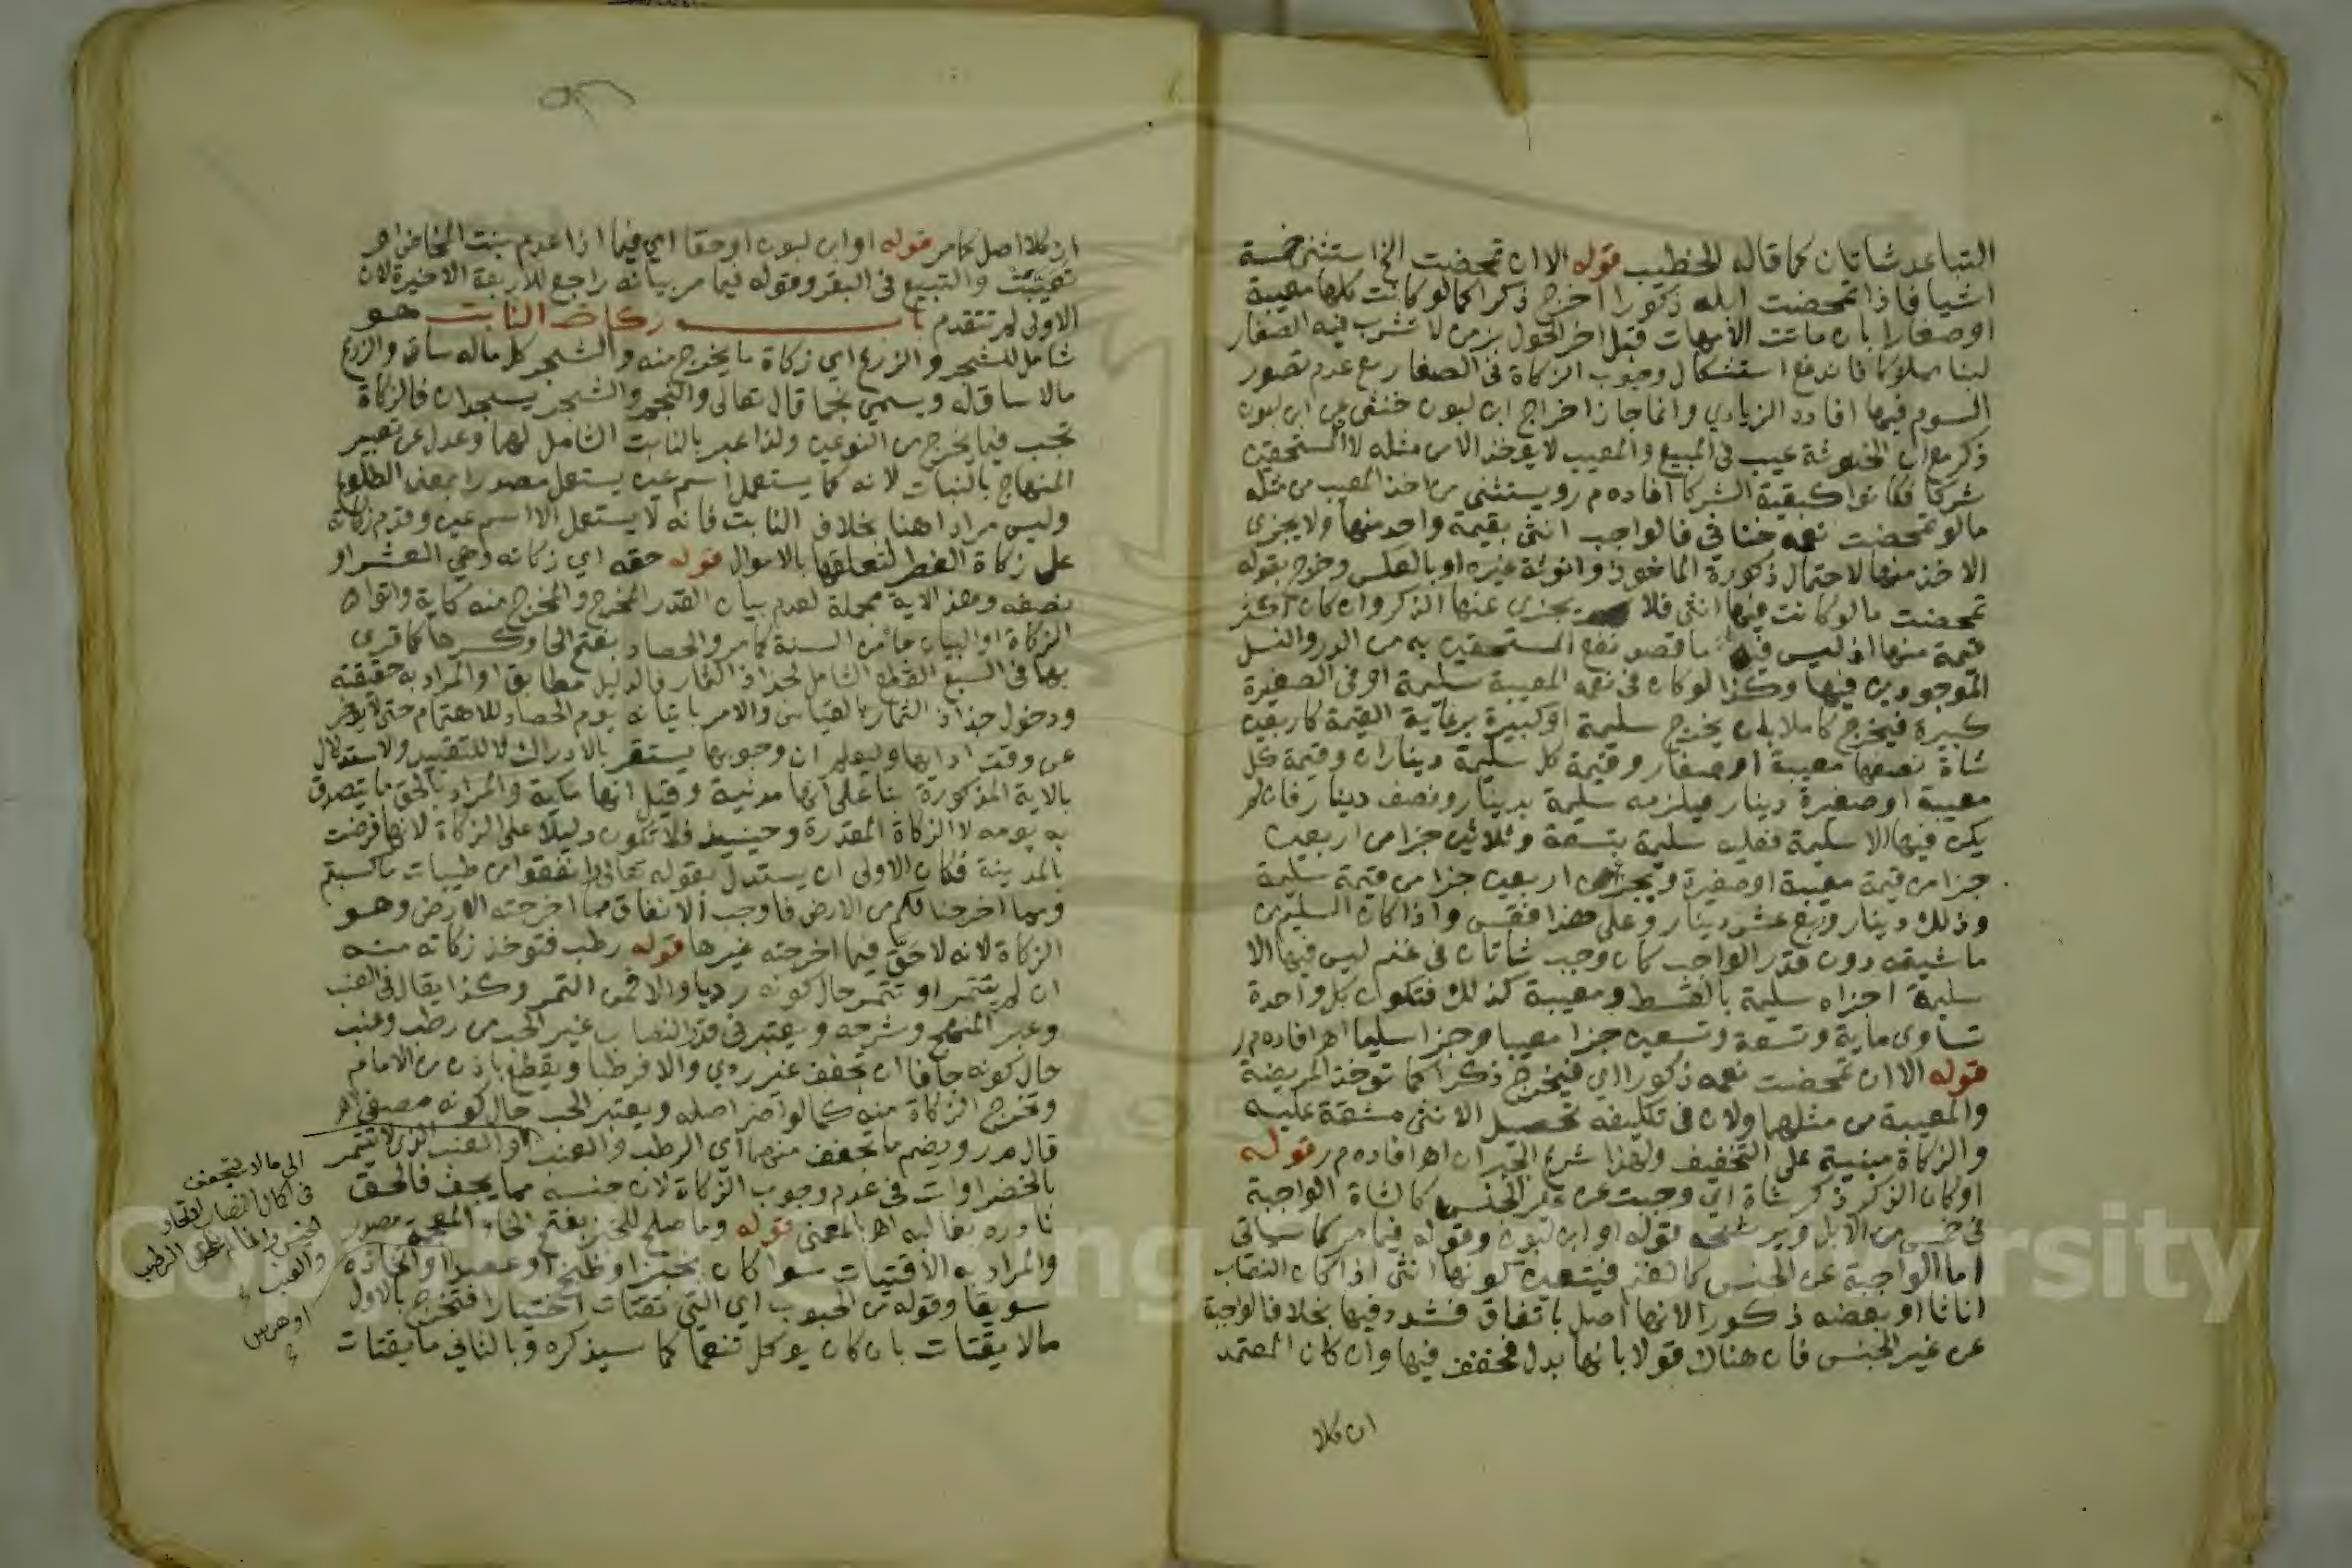 التباعد شاتان كما قاله الخطيب قوله الا ان تمحضت الخ استثنى خمسة
اشيا فاذا تمحضت ابله ذكورا اخرج ذكرا كما لو كانت كلها معيبة
او صغارا بان ماتت الامهات قبل اخر الحول بزمن لا تشرب فيه الصغار
لبنا مملوكا فاندفع استشكال وجوب الزكاة في الصغار مع عدم تصور
السوم فيها افاده الزيادي وانما جاز اخراج ابن لبون خنثى عن ابن لبون
ذكر مع ان الخنوثة عيب في المبيع والمعيب لا يوخذ الا من مثله لا المستحقين
شركا فكانوا كبقية الشركا افاده م ر ويستثنى من اخذ المعيب من مثله
ما لو تمحضت نعمه خناثى فالواجب انثى بقيمة واحد منها ولا يجزى
الاخذ منها لاحتمال ذكورة الماخوذ وانوثة غيره او بالعكس وخرج بقوله
تمحضت ما لو كانت فيها انثى فلا يجزي عنها الذكر وان كان اكثر
قيمة منها اذ ليس فيه ما قصد نفع المستحقين به من الدر والنسل
الموجودين فيها وكذا لو كان في نعمه المعيبة سليمة او في الصغيرة
كبيرة فيخرج كاملا بان يخرج سليمة او كبيرة برعاية القيمة كاربعين
شاة نصفها معيبة او صغار وقيمة كل سليمة ديناران وقيمة كل
معيبة او صغيرة دينار فيلزمه سليمة بدينار ونصف دينار فان لم
يكن فيها الا سليمة فعليه سليمة بتسعة وثلاثين جزا من اربعين
جزا من قيمة معيبة او صغيرة وبجزء من اربعين جزا من قيمة سليمة
وذلك دينار وربع عشر دينار وعلى هذا فقس واذا كان السليم من
ماشيته دون قدر الواجب كان وجب شاتان في غنم ليس فيها الا
سليمة اجزاه سليمة بالقسط ومعيبة كذلك فتكون كل واحدة
تساوى ماية وتسعة وتسعين جزا معيبا وجزا سليما اهـ افاده م ر
قوله الا ان تمحضت نعمه ذكورا اي فيخرج ذكرا كما توخذ المريضة
والمعيبة من مثلهما ولان في تكليفه تحصيل الانثى مشقة عليه
والزكاة مبنية على التخفيف ولهذا شرع الجبران اهـ افاده م ر قوله
او كان الذكر ذكر شاة اي وجبت عن غير الجنس كالشاة الواجبة
في خمس من الابل قوله او ابن لبون وقوله فيما مر كما سياتي
اما الواجبة عن الجنس كالغنم فيتعين كونها انثى اذا كان النصاب
اناثا او بعضه ذكورا لانها اصل باتفاق فشدد فيها بخلاف الواجبة
عن غير الجنس فان هناك قولا بانها بدل فخفف فيها وان كان المعتمد
ان كلا
ان كلا اصل كما مر قوله او ابن لبون او حقا اي فيما اذا عدم بنت المخاض او
تعيبت والتبيع في البقر وقوله فيما مر بيانه راجع للاربعة الاخيرة لان
الاولى لم تتقدم باب زكاة النابت هو
شامل للشجر والزرع اي زكاة ما يخرج منه والشجر كل ما له ساق والزرع
ما لا ساق له ويسمى نجما قال تعالى والنجم والشجر يسجدان فالزكاة
تجب فيما يخرج من النوعين ولذا عبر بالنابت الشامل لهما وعدل عن تعبير
المنهاج بالنبات لانه كما يستعمل اسم عين يستعمل مصدرا بمعنى الطلوع
وليس مرادا هنا بخلاف النابت فانه لا يستعمل الا اسم عين وقدم زكاته
على زكاة الفطر لتعلقها بالاموال قوله حقه اي زكاته وهي العشر او
نصفه وهذه الاية مجملة لعدم بيان القدر المخرج والمخرج منه كاية واتوا
الزكاة او البيان ما من السنة كما مر والحصاد بفتح الحا وكسرها كما قرى
بهما في السبع القطع الشامل لجذاذ الثمار فالدليل مطابق او المراد به حقيقته
ودخول جذاذ الثمار بالقياس والامر باتيانه يوم الحصاد للاهتمام حتى لا يوخر
عن وقت ادايها وليعلم ان وجوبها يستقر بالادراك لا للتقييد والاستدلال
بالاية المذكورة بناء على انها مدنية وقيل انها مكية والمراد بالحق ما يتصدق
به يومه لا الزكاة المقدرة وحينيذ فلا تكون دليلا على الزكاة لانها فرضت
بالمدينة فكان الاولى ان يستدل بقوله تعالى انفقوا من طيبات ما كسبتم
ومما اخرجنا لكم من الارض فاوجب الانفاق مما اخرجته الارض وهو
الزكاة لانه لا حق فيما اخرجته غيرها قوله رطب فتوخذ زكاته منه
ان لم يتتمر او تتمر حال كونه رديا والا فمن التمر وكذا يقال في العنب
وعبر المنهج وشرحه ويعتبر في قدر النصاب غير الحب من رطب وعنب
حال كونه جافا ان تجفف غير ردي والا فرطبا ويقطع باذن من الامام
وتخرج الزكاة منه كما لو اضر اصله ويعتبر الحب حال كونه مصفى اهـ
قال م ر ويضم ما تجفف منهما اي الرطب والعنب او العنب الذي لا يتتمر
بالخضراوات في عدم وجوب الزكاة لان جنسه مما يجف فالحق
نادره بغالبه اهـ بالمعنى قوله وما صلح للخبز بفتح الخاء المعجمة مصدر
والمراد به الاقتيات سوا كان بخبز او طبخ او عصيدا او اتخاذه
سويقا وقوله من الحبوب اي التي تقتات اختيارا فتخرج بالاول
ما لا يقتات بان كان يوكل تنعما كما سيذكره وبالثاني ما يقتات
الى ما لا يتجفف
في اكمال النصاب لاتحاد
الجنس الرطب
والعنب
Copyright © King Saud University